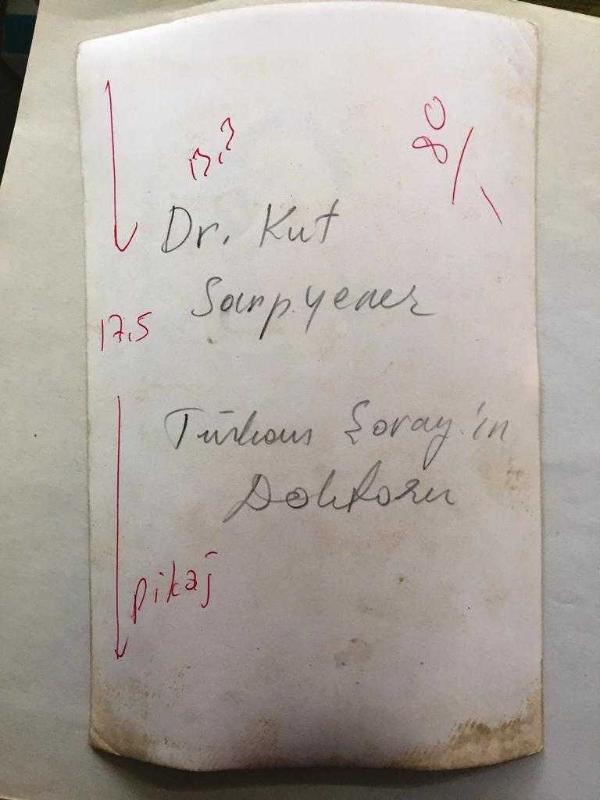 80/1
13,3
Dr. Kut
Sarpyener
17,5
Türkan Şoray'ın
Doktoru
pikaj